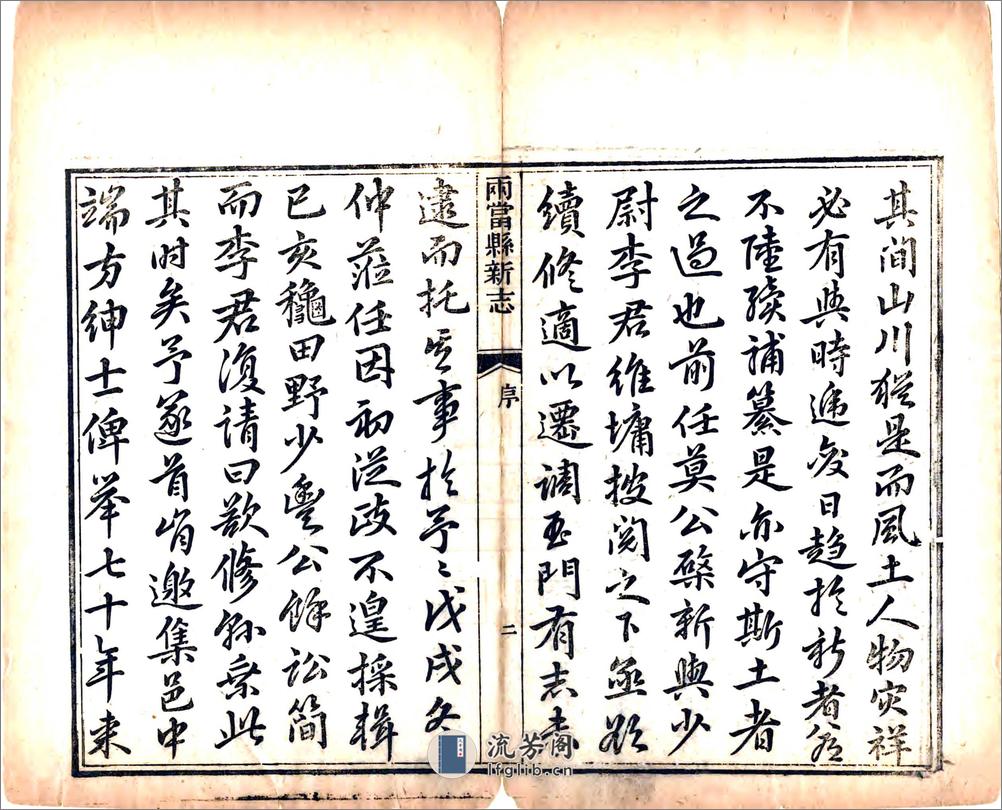 其间山川犹是而風土人物灾祥
必有與時递变日趋於新者若
不陸续補纂是亦守斯土者
之過也前任莫公燊新與少
尉李君维墉披阅之下亟欲
續修適以遷调玉門有志未
兩當縣新志
序
二
逮而托其事於予〻戊戌冬
仲莅任因初從政不遑採輯
已亥龝田野少豐公餘讼简
而李君復請曰欲修縣乘此
其时矣予遂首肯邀集邑中
端方绅士俾举七十年来
流芳阁
lfglib.cn